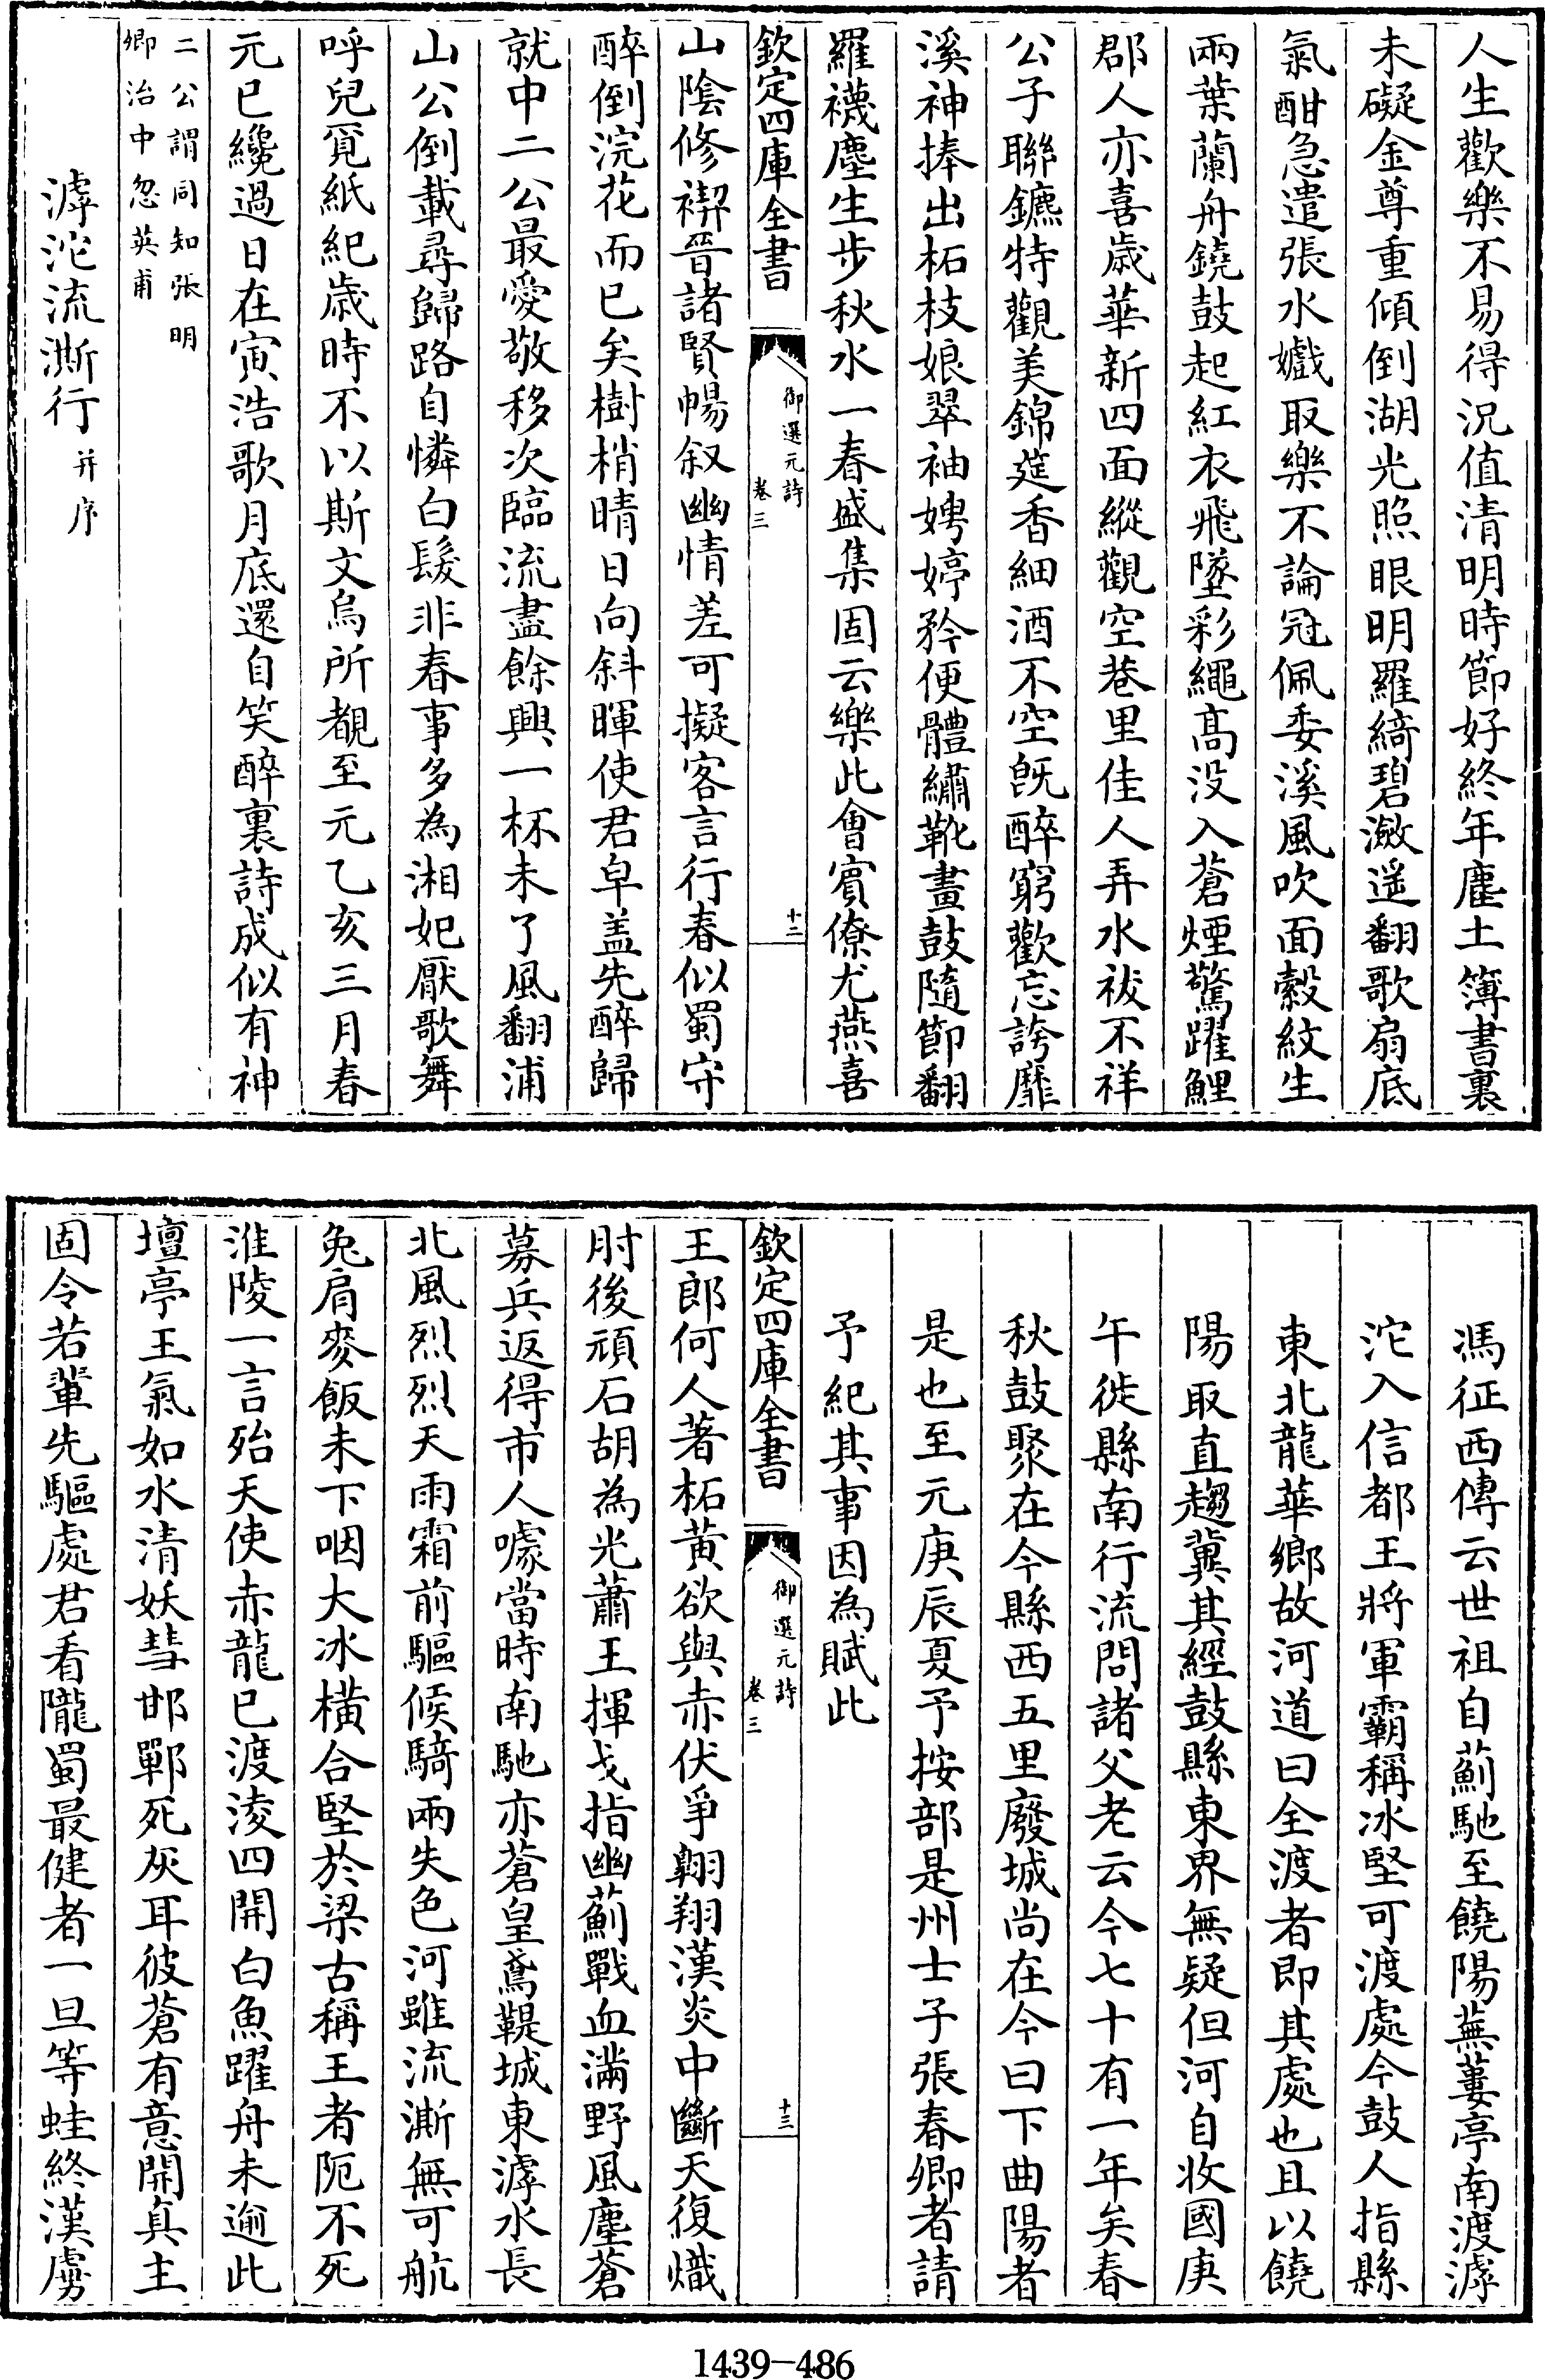 人生歡樂不易得況值清明時節好終年塵土簿書裏
未礙金尊重傾倒湖光照眼明羅綺碧瀲遥翻歌扇底
氣酣急遣張水嬉取樂不論冠佩委溪風吹面縠紋生
兩葉蘭舟鐃鼓起紅衣飛墜彩繩髙没入蒼煙驚躍鯉
郡人亦喜歳華新四面縱觀空巷里佳人弄水祓不祥
公子聯鑣特觀美錦筵香細酒不空旣醉窮歡忘誇靡
溪神捧出柘枝娘翠袖娉婷矜便體繡靴畫鼓隨節翻
羅襪塵生步秋水一春盛集固云樂此會賓僚尤燕喜
欽定四庫全書
御選元詩
卷三
十二
山陰修禊晉諸賢暢叙幽情差可擬客言行春似蜀守
醉倒浣花而已矣樹梢晴日向斜暉使君皁盖先醉歸
就中二公最愛敬移次臨流盡餘興一杯未了風翻浦
山公倒載尋歸路自憐白髮非春事多為湘妃厭歌舞
呼兒覓紙紀歳時不以斯文烏所覩至元乙亥三月春
元巳纔過日在寅浩歌月底還自笑醉裏詩成似有神
二公謂同知張明
卿治中忽英甫
滹沱流澌行并序
馮征西傳云世祖自薊馳至饒陽蕪蔞亭南渡滹
沱入信都王將軍霸稱冰堅可渡處今鼓人指縣
東北龍華鄉故河道曰全渡者即其處也且以饒
陽取直趨冀其經鼓縣東界無疑但河自收國庚
午徙縣南行流問諸父老云今七十有一年矣春
秋鼓聚在今縣西五里廢城尚在今曰下曲陽者
是也至元庚辰夏予按部是州士子張春卿者請
予紀其事因為賦此
欽定四庫全書
御選元詩
卷三
十三
王郎何人著柘黃欲與赤伏爭翺翔漢炎中斷天復熾
肘後頑石胡為光蕭王揮戈指幽薊戰血滿野風塵蒼
募兵返得市人噱當時南馳亦蒼皇鳶鞮城東滹水長
北風烈烈天雨霜前驅候騎兩失色河雖流澌無可航
兔肩麥飯未下咽大冰橫合堅於梁古稱王者阨不死
淮陵一言殆天使赤龍已渡淩四開白魚躍舟未逾此
壇亭王氣如水清妖彗邯鄲死灰耳彼蒼有意開真主
固令若輩先驅處君看隴蜀最健者一旦等蛙終漢虜
1439-486